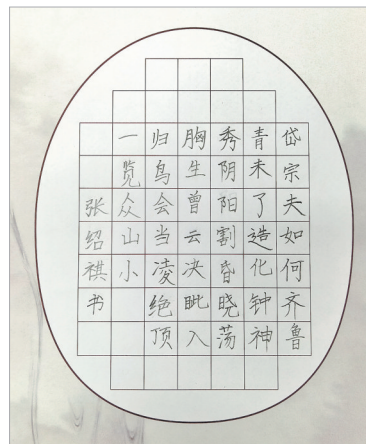 岱宗夫如何齐鲁
青未了造化钟神
秀阴阳割昏晓荡
胸生曾云决眦入
归鸟会当凌绝顶
一览众山小
张绍祺书